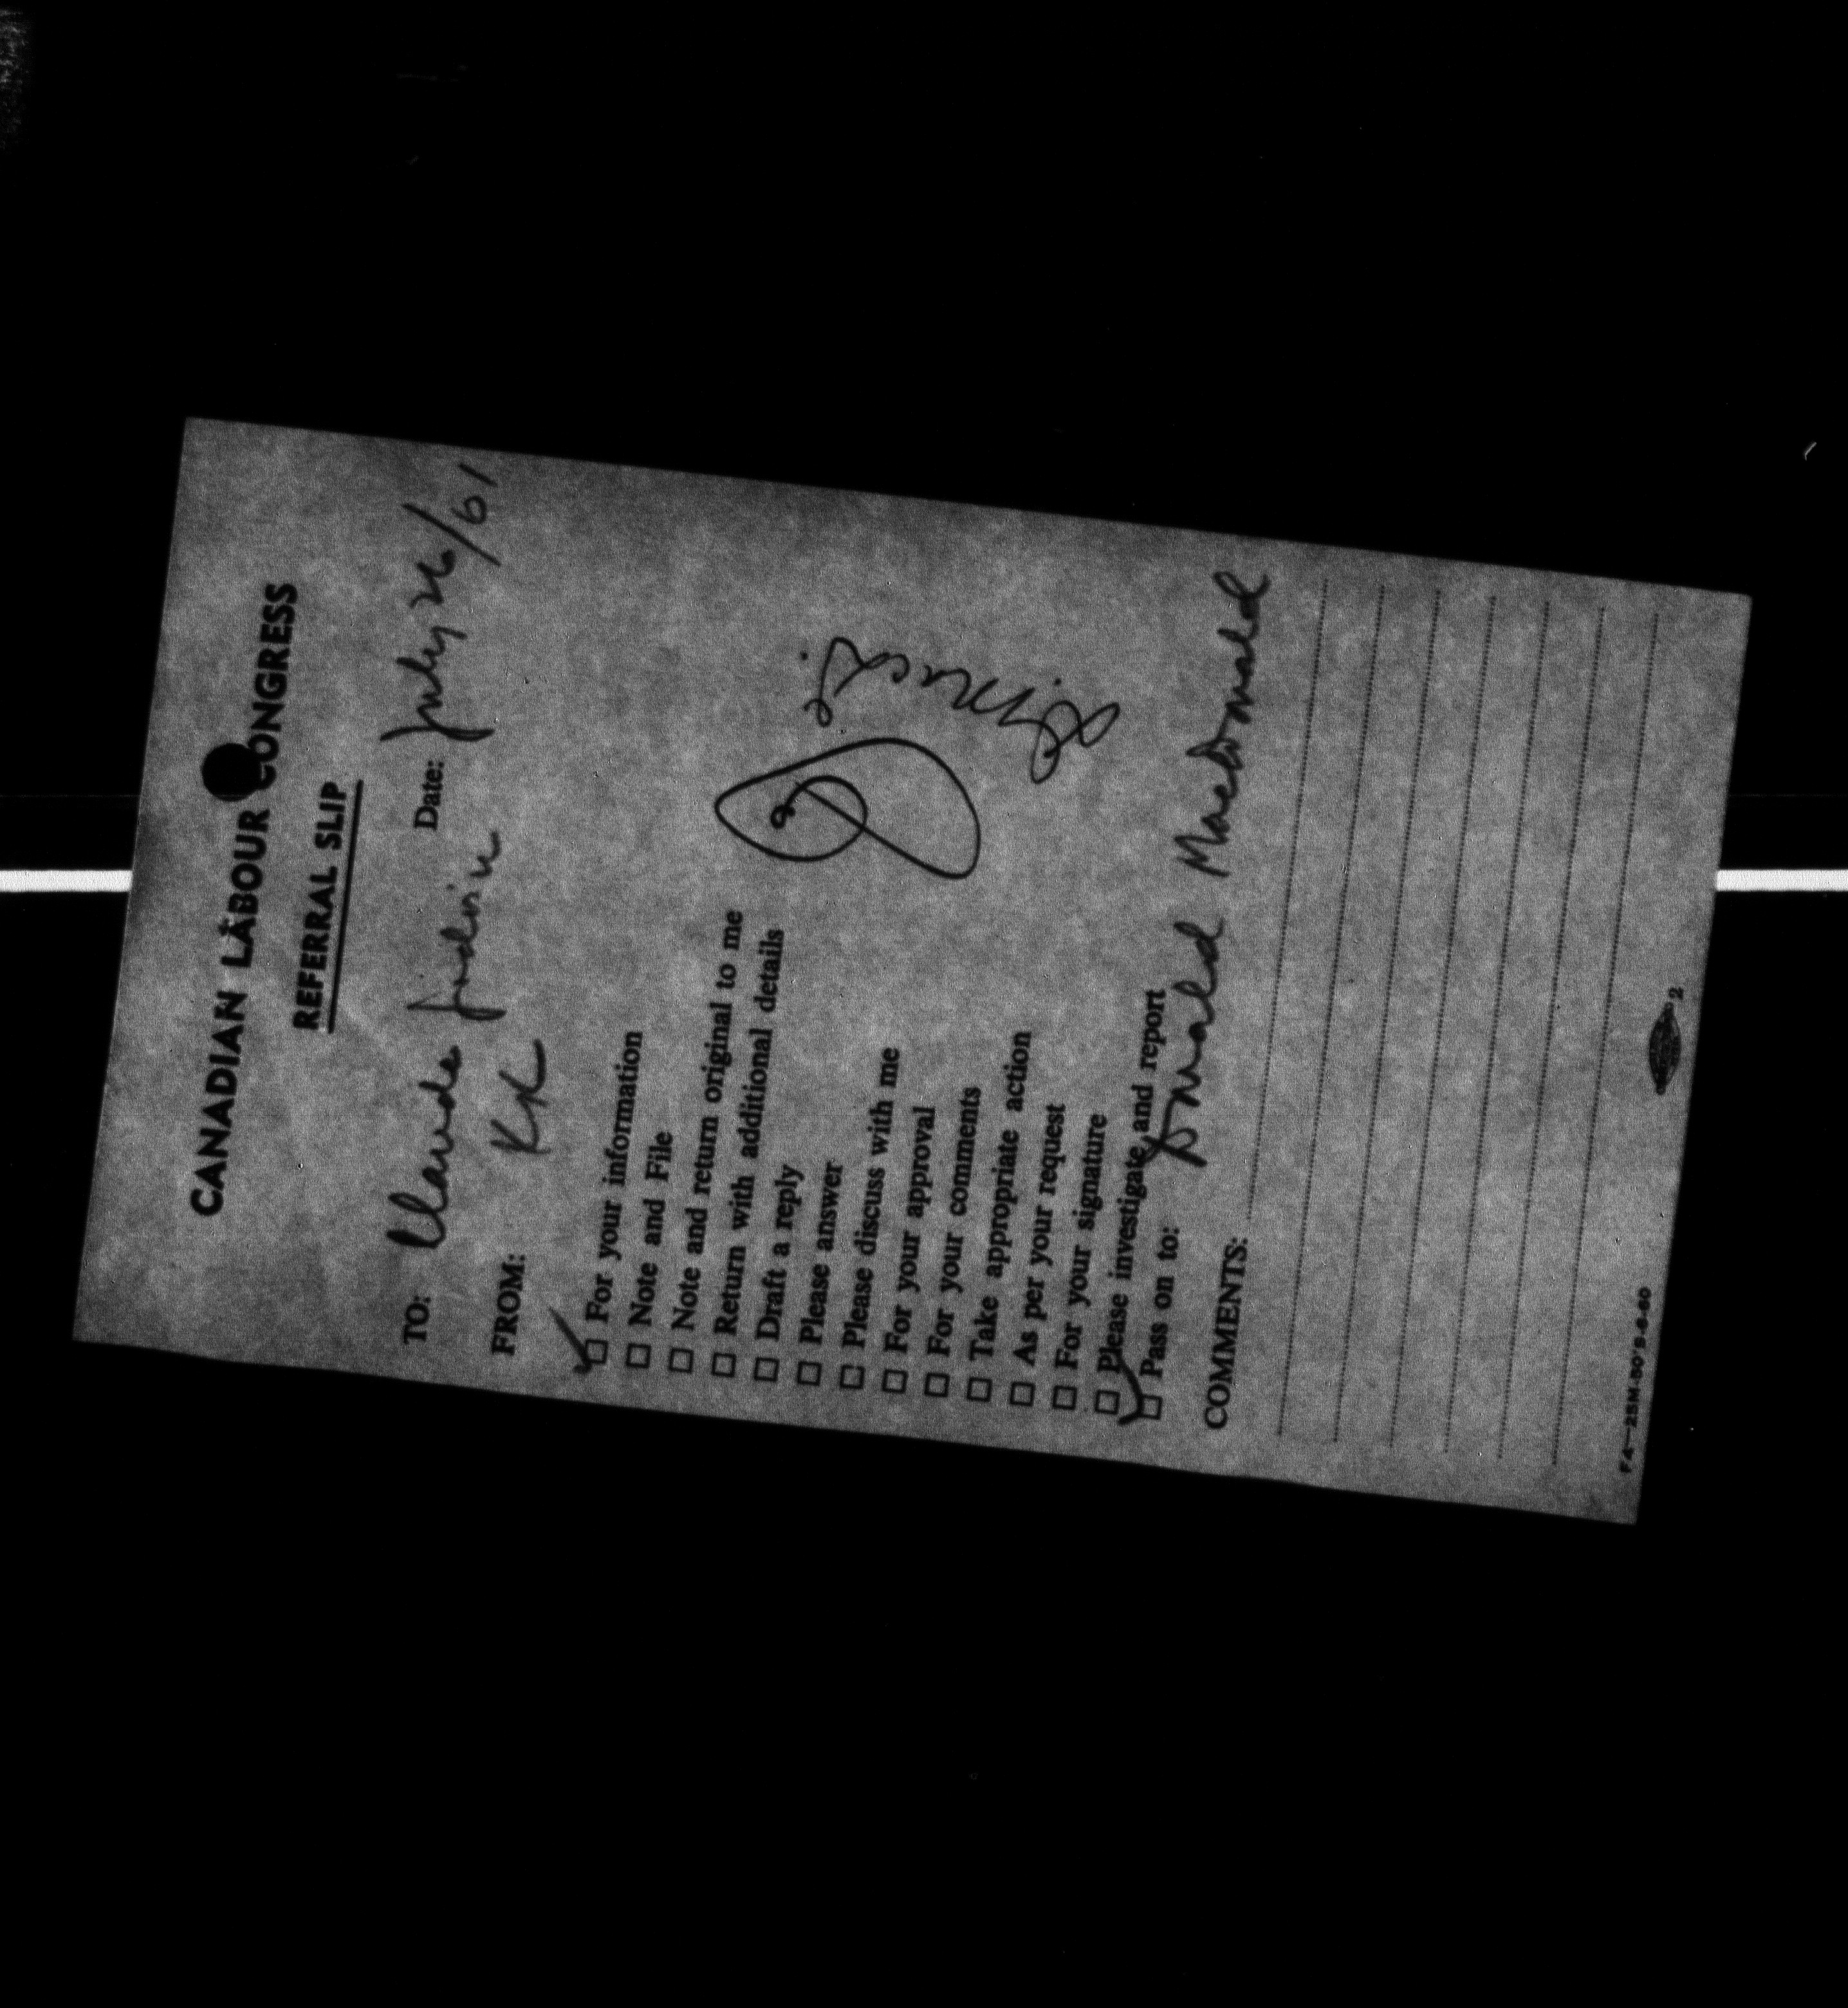 CANADIAN LABOUR CONGRESS
REFERRAL SLIP
TO: Claude Jodoin Date: July 26/61
FROM: KK
☑ For your information
☐ Note and File
☐ Note and return original to me
☐ Return with additional details
☐ Draft a reply
☐ Please answer
☐ Please discuss with me
☐ For your approval
☐ For your comments
☐ Take appropriate action
☐ As per your request
☐ For your signature
☐ Please investigate and report
☑ Pass on to: Donald MacDonald
COMMENTS:
F4—25M-50's-6-60
2